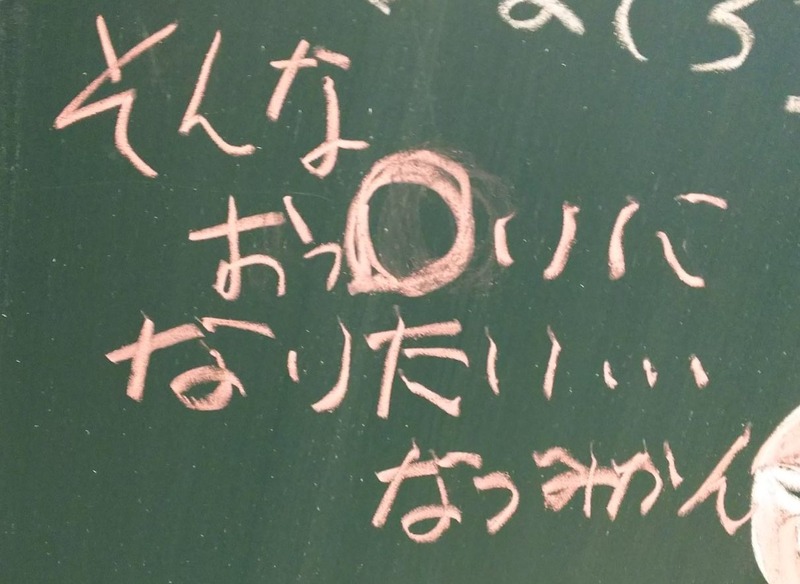 そんな
おっ○いに
なりたい…
なつみかん